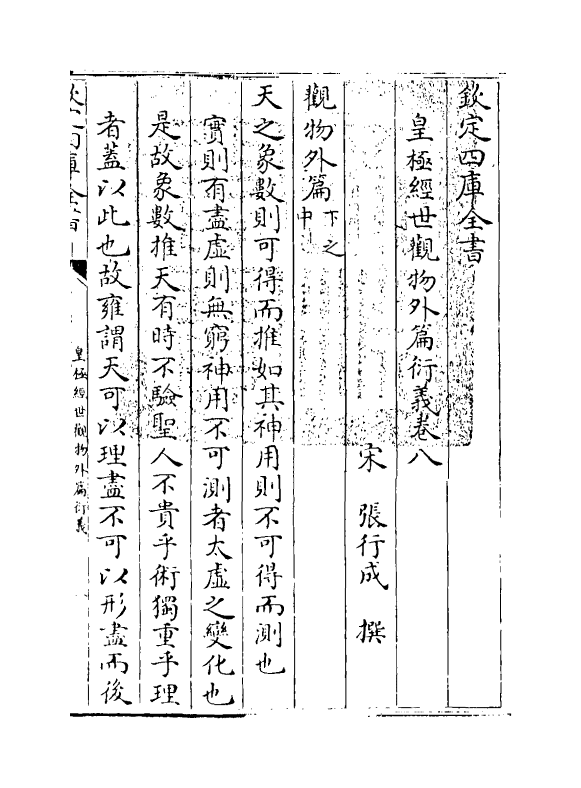 欽定四庫全書
皇極經世觀物外篇衍義卷八
宋 張行成 撰
觀物外篇下之中
天之象數則可得而推如其神用則不可得而測也
實則有盡虛則無窮神用不可測者太虛之變化也
是故象數推天有時不驗聖人不貴乎術獨重乎理
者蓋以此也故雍謂天可以理盡不可以形盡而後
欽定四庫全書
皇極經世觀物外篇衍義